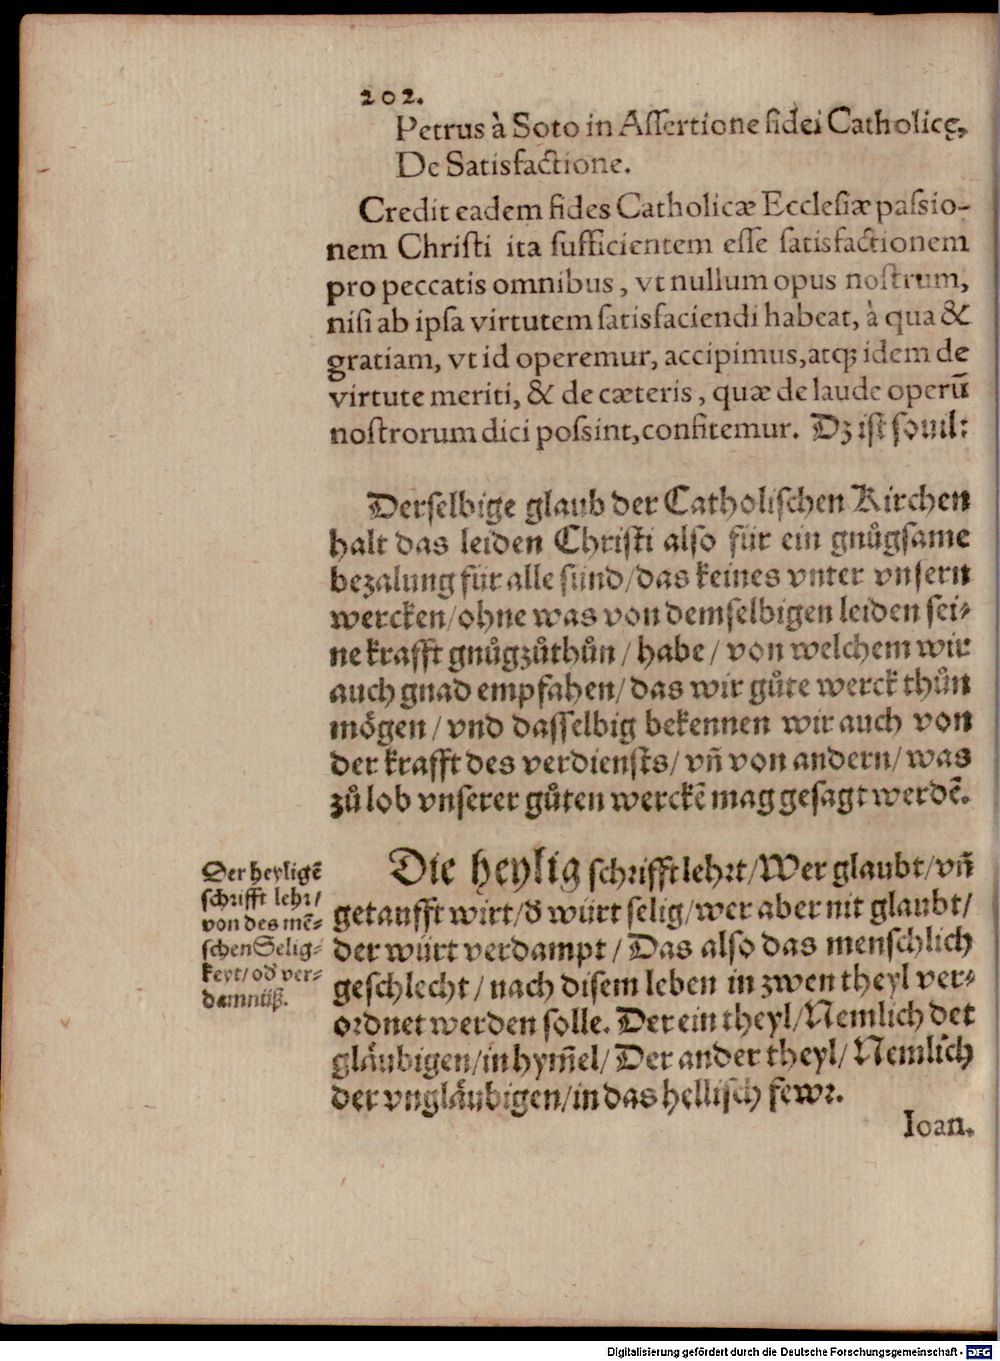 202.
Petrus à Soto in Assertione fidei Catholicę,
De Satisfactione.
Credit eadem fides Catholicæ Ecclesiæ passio-
nem Christi ita sufficientem esse satisfactionem
pro peccatis omnibus, vt nullum opus nostrum,
nisi ab ipsa virtutem satisfaciendi habeat, à qua &
gratiam, vt id operemur, accipimus, atq; idem de
virtute meriti, & de cæteris, quæ de laude operū
nostrorum dici possint, confitemur. Dz ist souil:
Derselbige glaub der Catholischen Kirchen
halt das leiden Christi also für ein gnůgsame
bezalung für alle sünd/das keines vnter vnsern
wercken/ohne was von demselbigen leiden sei-
ne krafft gnůgzůthůn/habe/von welchem wir
auch gnad empfahen/das wir gůte werck thůn
mögen/vnd dasselbig bekennen wir auch von
der krafft des verdiensts/vñ von andern/was
zů lob vnserer gůten werckē mag gesagt werdē.
Der heyligē
schrifft lehr/
von des mē-
schen Selig-
keyt/od' ver-
damnüß.
Die heylig schrifft lehrt/Wer glaubt/vñ
getaufft wirt/d' würt selig/wer aber nit glaubt/
der würt verdampt/Das also das menschlich
geschlecht/nach disem leben in zwen theyl ver-
ordnet werden solle. Der ein theyl/Nemlich det
gläubigen/in hym̃el/Der ander theyl/Nemlich
der vngläubigen/in das hellisch fewr.
Ioan.
Digitalisierung gefördert durch die Deutsche Forschungsgemeinschaft - DFG